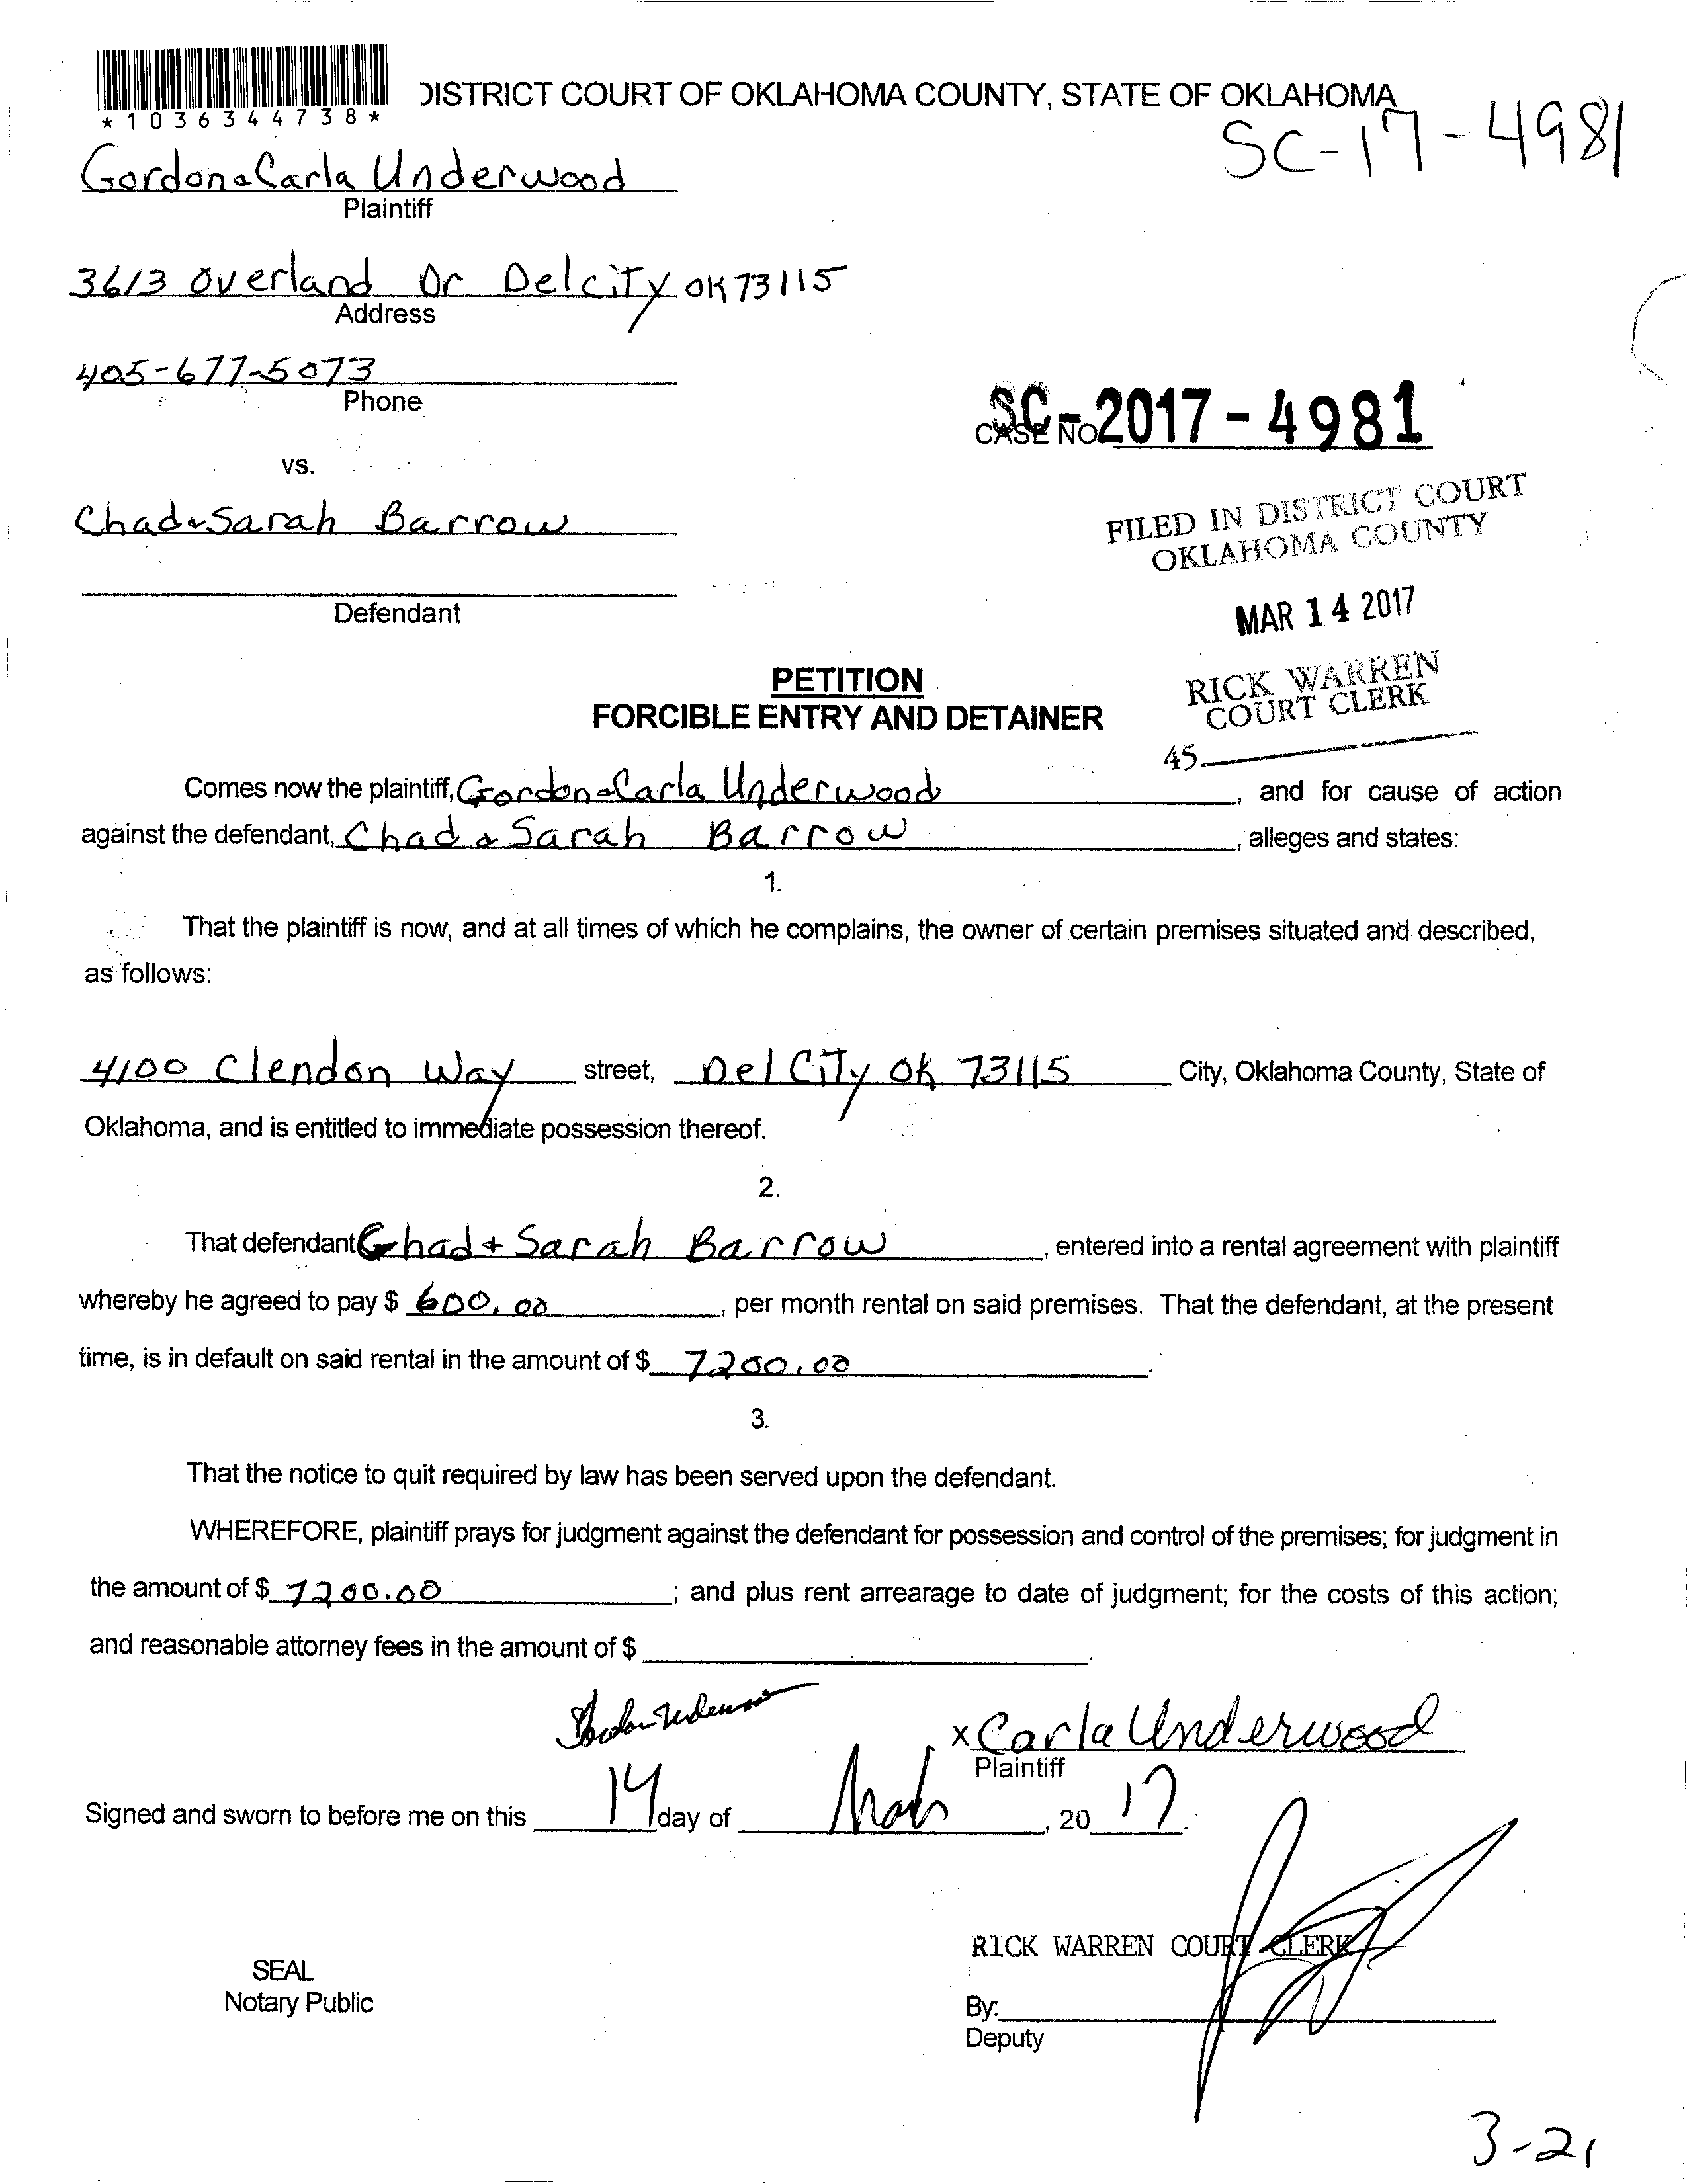 *1036344738*
DISTRICT COURT OF OKLAHOMA COUNTY, STATE OF OKLAHOMA
SC-17-4981
Gordon & Carla Underwood
Plaintiff
3613 Overland Dr Delcity OK 73115
Address
405-677-5073
Phone
SC-2017-4981
CASE NO
vs.
Chad & Sarah Barrow
Defendant
FILED IN DISTRICT COURT
OKLAHOMA COUNTY
MAR 14 2017
RICK WARREN
COURT CLERK
45
PETITION
FORCIBLE ENTRY AND DETAINER
Comes now the plaintiff, Gordon & Carla Underwood, and for cause of action
against the defendant, Chad & Sarah Barrow, alleges and states:
1.
That the plaintiff is now, and at all times of which he complains, the owner of certain premises situated and described,
as follows:
4100 Clendon Way street, Del City Ok 73115 City, Oklahoma County, State of
Oklahoma, and is entitled to immediate possession thereof.
2.
That defendant Chad + Sarah Barrow, entered into a rental agreement with plaintiff
whereby he agreed to pay $ 600.00, per month rental on said premises. That the defendant, at the present
time, is in default on said rental in the amount of $ 7200.00.
3.
That the notice to quit required by law has been served upon the defendant.
WHEREFORE, plaintiff prays for judgment against the defendant for possession and control of the premises; for judgment in
the amount of $ 7200.00; and plus rent arrearage to date of judgment; for the costs of this action;
and reasonable attorney fees in the amount of $ .
Gordon Underwood
x Carla Underwood
Plaintiff
Signed and sworn to before me on this 14 day of March, 2017.
RICK WARREN COURT CLERK
SEAL
Notary Public
By:
Deputy
3-21